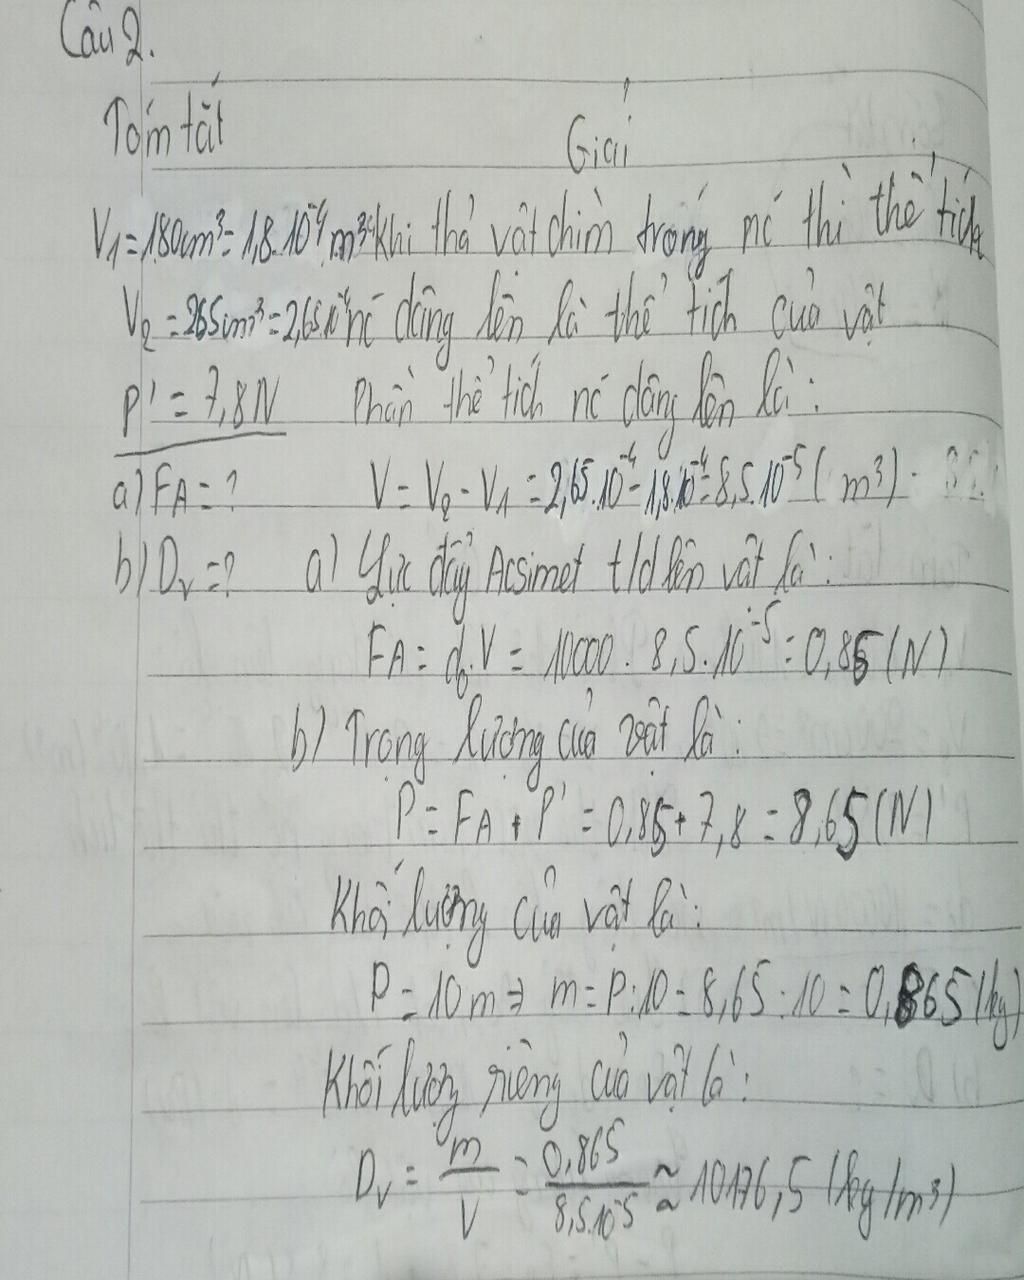 Câu 2.
Tóm tắt
Giải
V₁=180cm³=1,8.10⁻⁴m³ Khi thả vật chìm trong nć thì thể tích
V₂=265cm³=2,65.10⁻⁴ nć dâng lên là thể tích của vật
P'=7,8N Phần thể tích nć dâng lên là:
a) FA=? V=V₂-V₁=2,65.10⁻⁴-1,8.10⁻⁴=8,5.10⁻⁵(m³)
b) Dv=? a) Lực đẩy Acsimet t/d lên vật là:
FA=d₀.V=10000.8,5.10⁻⁵=0,85(N)
b) Trọng lượng của vật là:
P=FA+P'=0,85+7,8=8,65(N)
Khối lượng của vật là:
P=10m⇒m=P:10=8,65:10=0,865(kg)
Khối lượng riêng của vật là:
Dv=m/V=0,865/8,5.10⁻⁵≈10176,5(kg/m³)